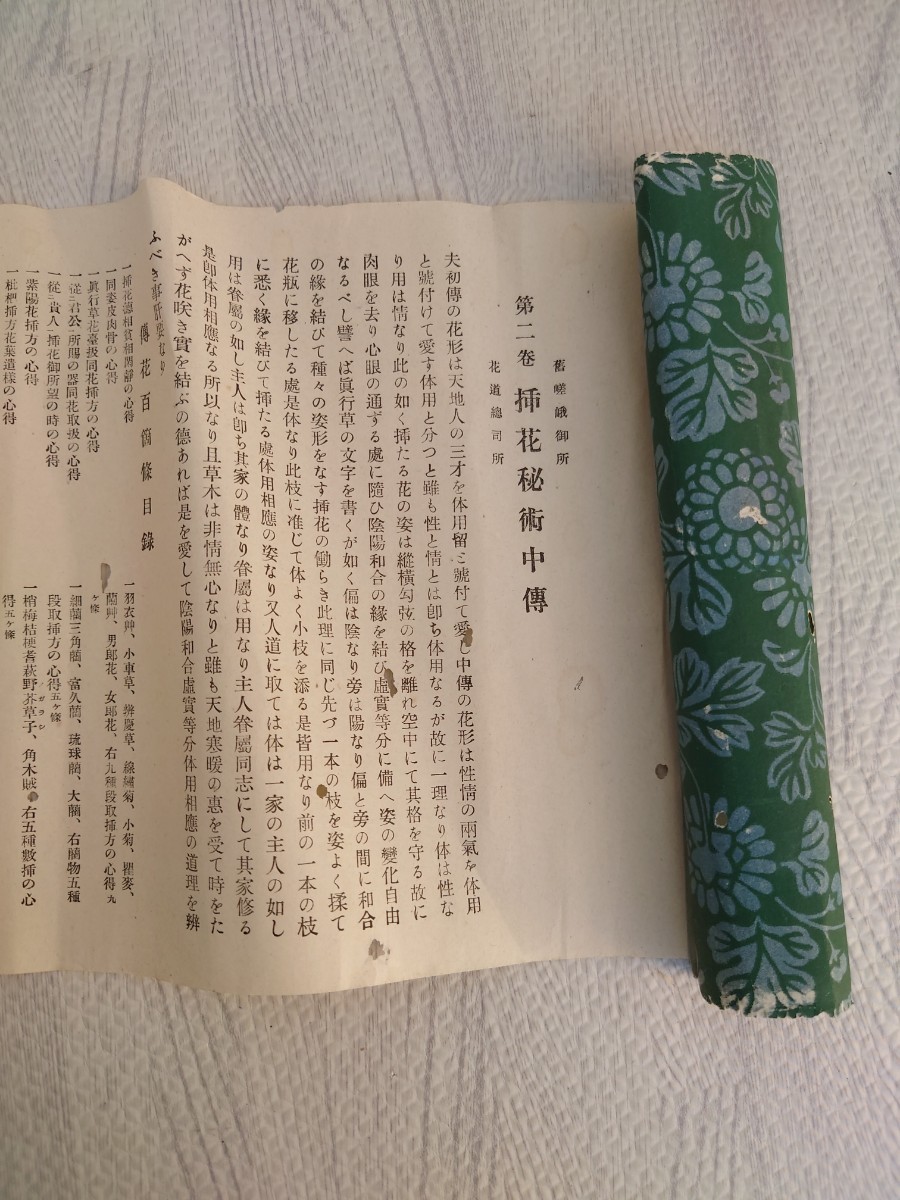 舊嵯峨御所
第二卷 挿花秘術中傳
花道總司所
夫初傳の花形は天地人の三才を体用留と號付て愛し中傳の花形は性情の兩氣を体用
と號付けて愛す体用と分つと雖も性と情とは卽ち体用なるが故に一理なり体は性な
り用は情なり此の如く挿たる花の姿は縱橫勾弦の格を離れ空中にて其格を守る故に
肉眼を去り心眼の通ずる處に隨ひ陰陽和合の緣を結び虛實等分に備へ姿の變化自由
なるべし譬へば眞行草の文字を書くが如く偏は陰なり旁は陽なり偏と旁の間に和合
の緣を結びて種々の姿形をなす挿花の働らき此理に同じ先づ一本の枝を姿よく揉て
花瓶に移したる處是体なり此枝に准じて体よく小枝を添る是皆用なり前の一本の枝
に悉く緣を結びて挿たる處体用相應の姿なり又人道に取ては体は一家の主人の如し
用は眷屬の如し主人は卽ち其家の體なり眷屬は用なり主人眷屬同志にして其家修る
是卽体用相應なる所以なり且草木は非情無心なりと雖も天地寒暖の惠を受て時をた
がへず花咲き實を結ぶの德あれば是を愛して陰陽和合虛實等分体用相應の道理を辨
ふべき事肝要なり
傳花百箇條目錄
一挿花德相貧相閑靜の心得
一同姿皮肉骨の心得
一眞行草花臺扱同花挿方の心得
一從二君公一所賜の器同花取扱の心得
一從二貴人一挿花御所望の時の心得
一紫陽花挿方の心得
一枇杷挿方花葉遣樣の心得
一羽衣艸、小車草、辨慶草、線繡菊、小菊、瞿麥、
蘭艸、男郞花、女郞花、右九種段取挿方の心得九
ケ條
一細藺三角藺、富久藺、琉球藺、大藺、右藺物五種
段取挿方の心得五ケ條
一梢梅桔梗耆萩野芥草子、角木賊、右五種數挿の心
得五ケ條